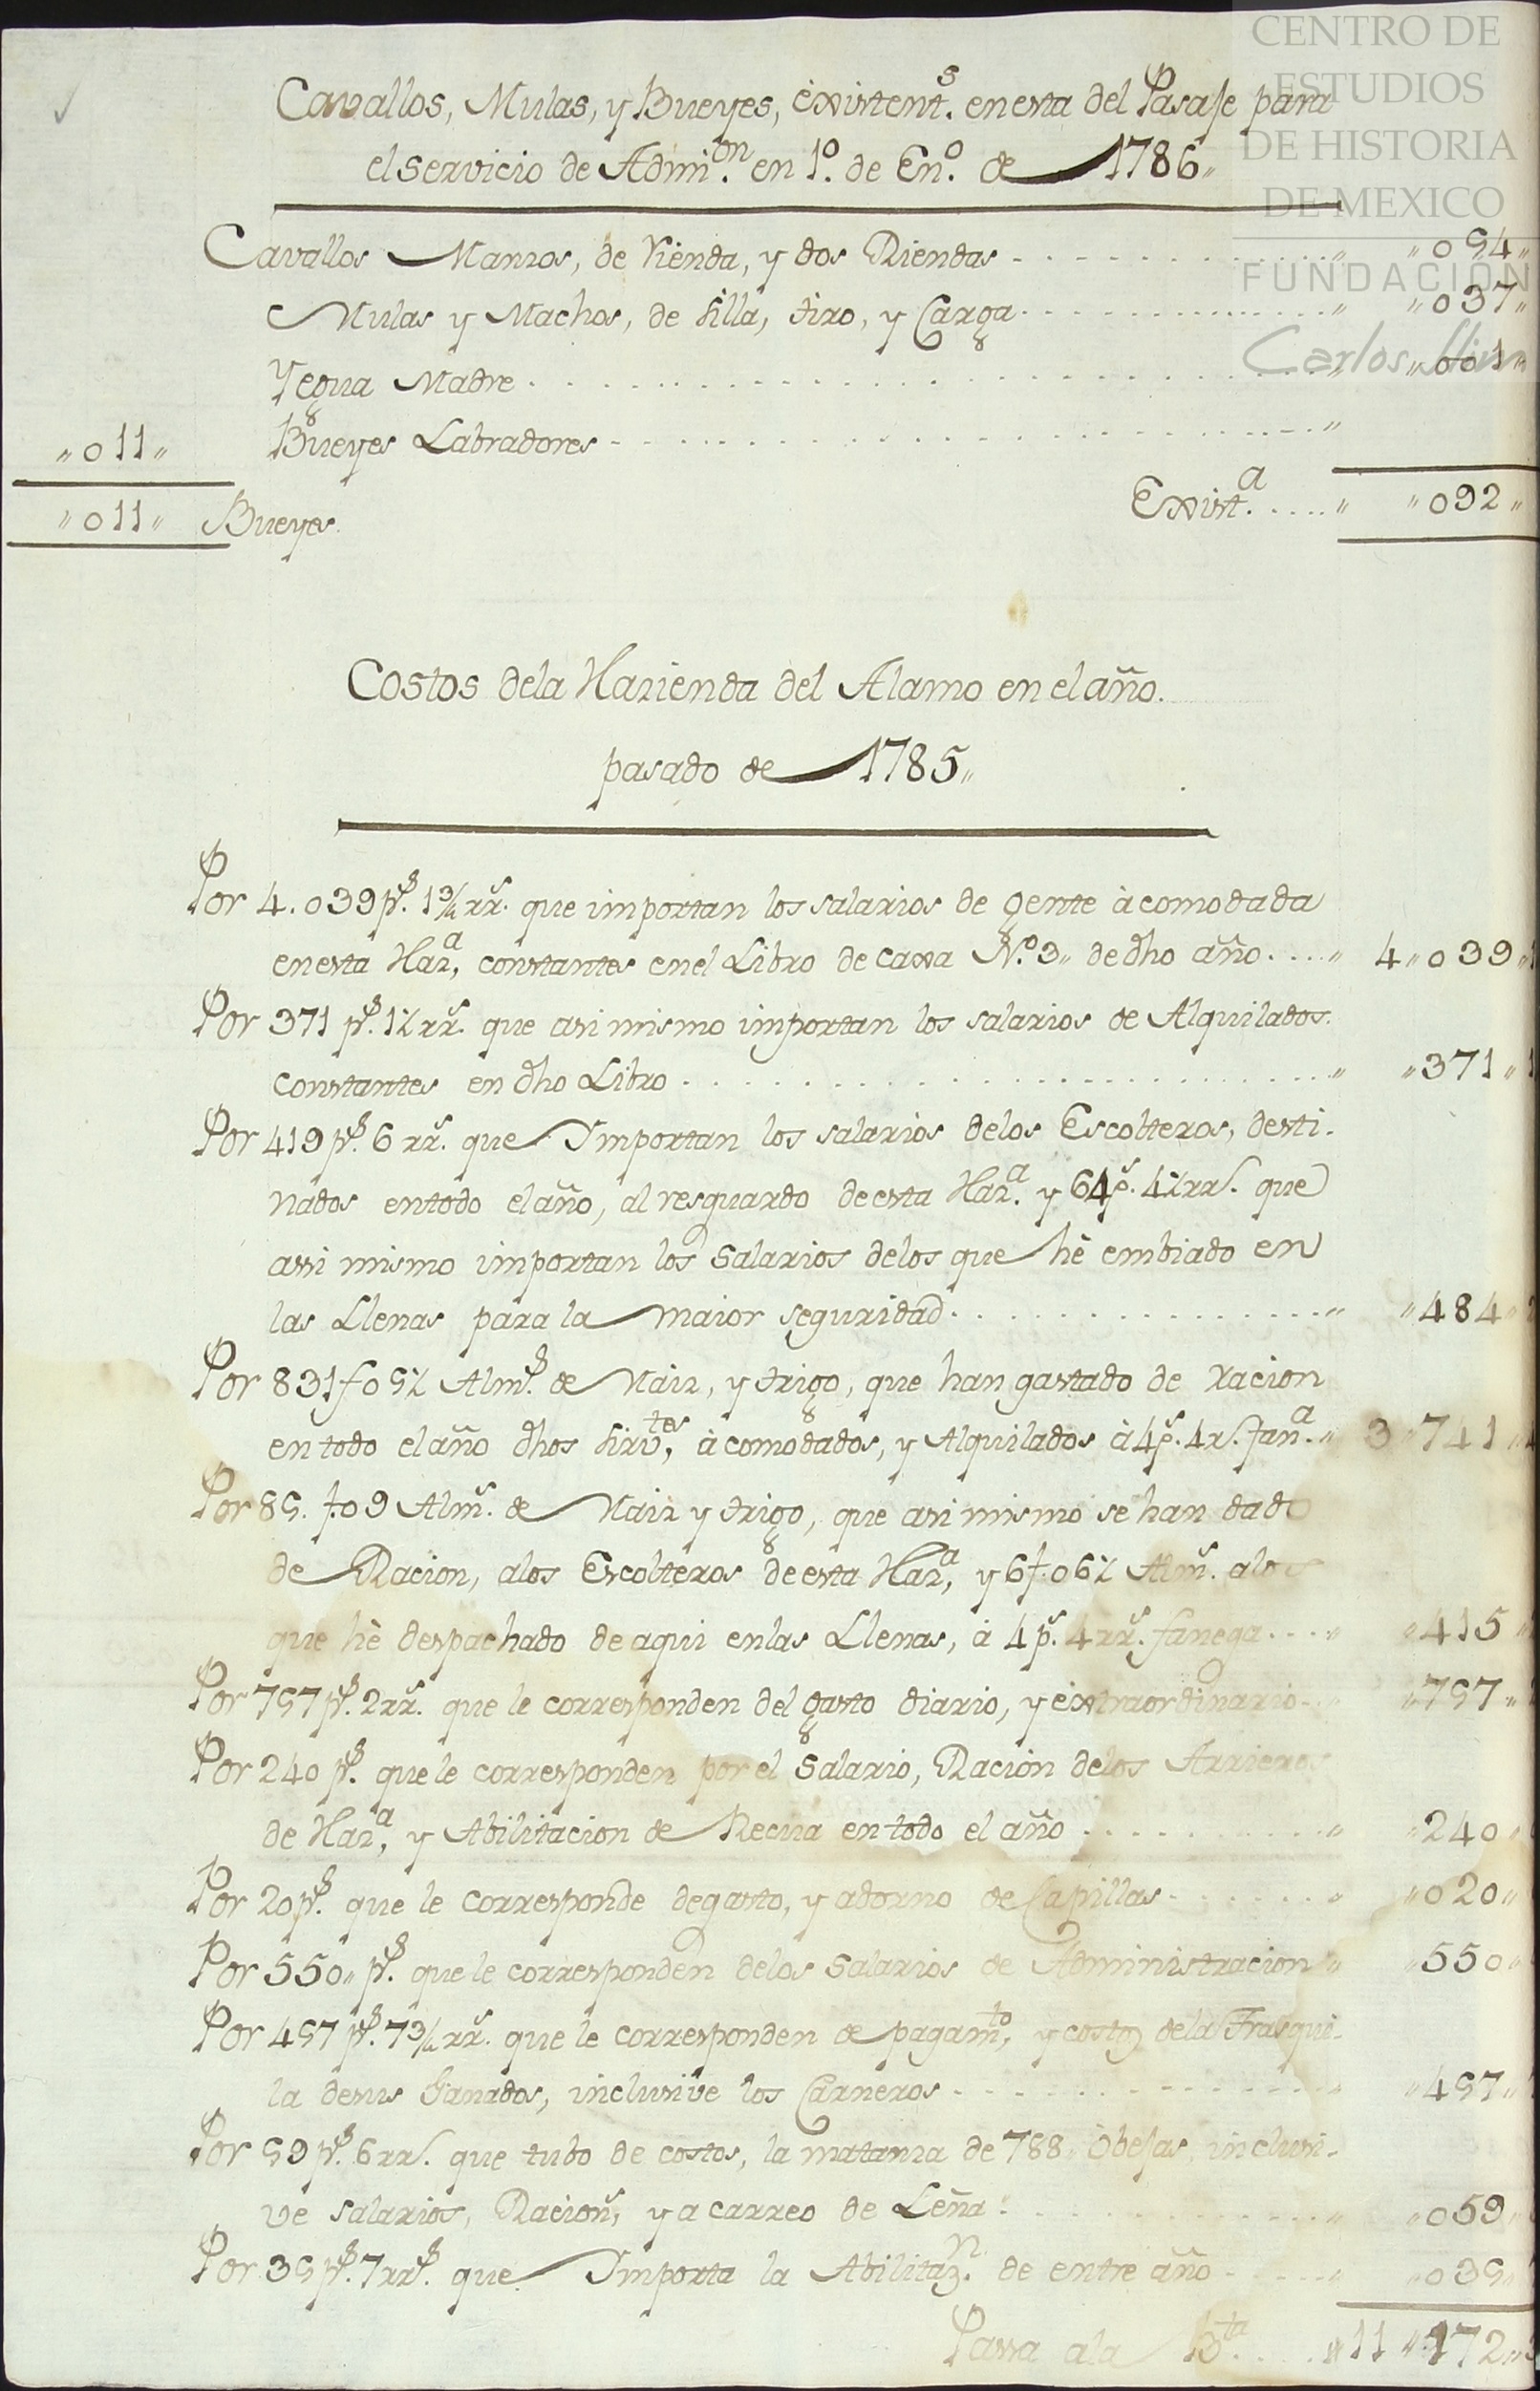 CENTRO DE
ESTUDIOS
DE HISTORIA
DE MEXICO
FUNDACIÓN
Carlos Slim
Cavallos, Mulas, y Bueyes, èxistent.s en esta del Pasaje para
el servicio de Admi.on en 1.o de En.o de 1786„
Cavallos Mansos, de Rienda, y dos Riendas - . . . . . . . . . „ „054„
Mulas y Machos, de silla, tiro, y Carga . . . . . . . . . „ „037„
Yegua Madre . . . . . . . . . . . . . . . „ „001„
„011„ Bueyes Labradores - . . . . . . . . . . . . „
„011„ Bueyes. Exist.a . . . . „ „092„
Costos dela Hazienda del Alamo en el año.
pasado de 1785„
Por 4.039 p.s 1¾ rr.s que importan los salarios de gente àcomodada
en esta Haz.a, constantes en el Libro de caxa N.o 3„ de dho año . . . . „ 4„039„1
Por 371 p.s 1½ rr.s que asi mismo importan los salarios de Alquilados.
constantes en dho Libro . . . . . . . . . . . . . . „ „371„1
Por 419 p.s 6 rr.s que Importan los salarios delos Escolteros, desti-
nados entodo el año, al resguardo de esta Haz.a y 64 p.s 4½ rr.s que
assi mismo importan los salarios delos que hè embiado en
las Llenas para la maior seguridad . . . . . . . . . . „ „484„
Por 831 f 05½ Alm.s de Maiz, y trigo, que han gastado de racion
en todo el año dhos sirv.tes, àcomodados, y Alquilados à 4 p.s 4 r.s fan.a „ 3„741„
Por 85. f. 09 Alm.s de Maiz y trigo, que asi mismo se han dado
de Racion, alos Escolteros de esta Haz.a, y 6 f. 06½ Alm.s alos
que hè despachado de aqui enlas Llenas, à 4 p.s 4 rr.s fanega . . . „ „415„
Por 757 p.s 2 rr.s que le corresponden del gasto diario, y èxtraordinario - . „ „757„
Por 240 p.s que le corresponden por el salario, Racion delos Arrieros
de Haz.a, y Abilitacion de Recua en todo el año . . . . . . . . „ „240„
Por 20 p.s que le corresponde de gasto, y adorno de Capillas - . . . . . „ „020„
Por 550„ p.s que le corresponden delos salarios de Administracion „ „550„
Por 457 p.s 7¾ rr.s que le corresponden de pagam.to, y costo dela Trasqui-
la desus Ganados, inclusive los Carneros - . . . . . . . . . . „ „457„
Por 59 p.s 6 rr.s que tubo de costos, la matanza de 788„ Obejas, inclusi-
ve salarios, Racion.s, y acarreo de Leña . . . . . . . . . . „ „059„
Por 35 p.s 7 rr.s que Importa la Abilitaz.n de entre año - . . . . „ „035„
Passa ala B.ta . . . . „ 11„172„